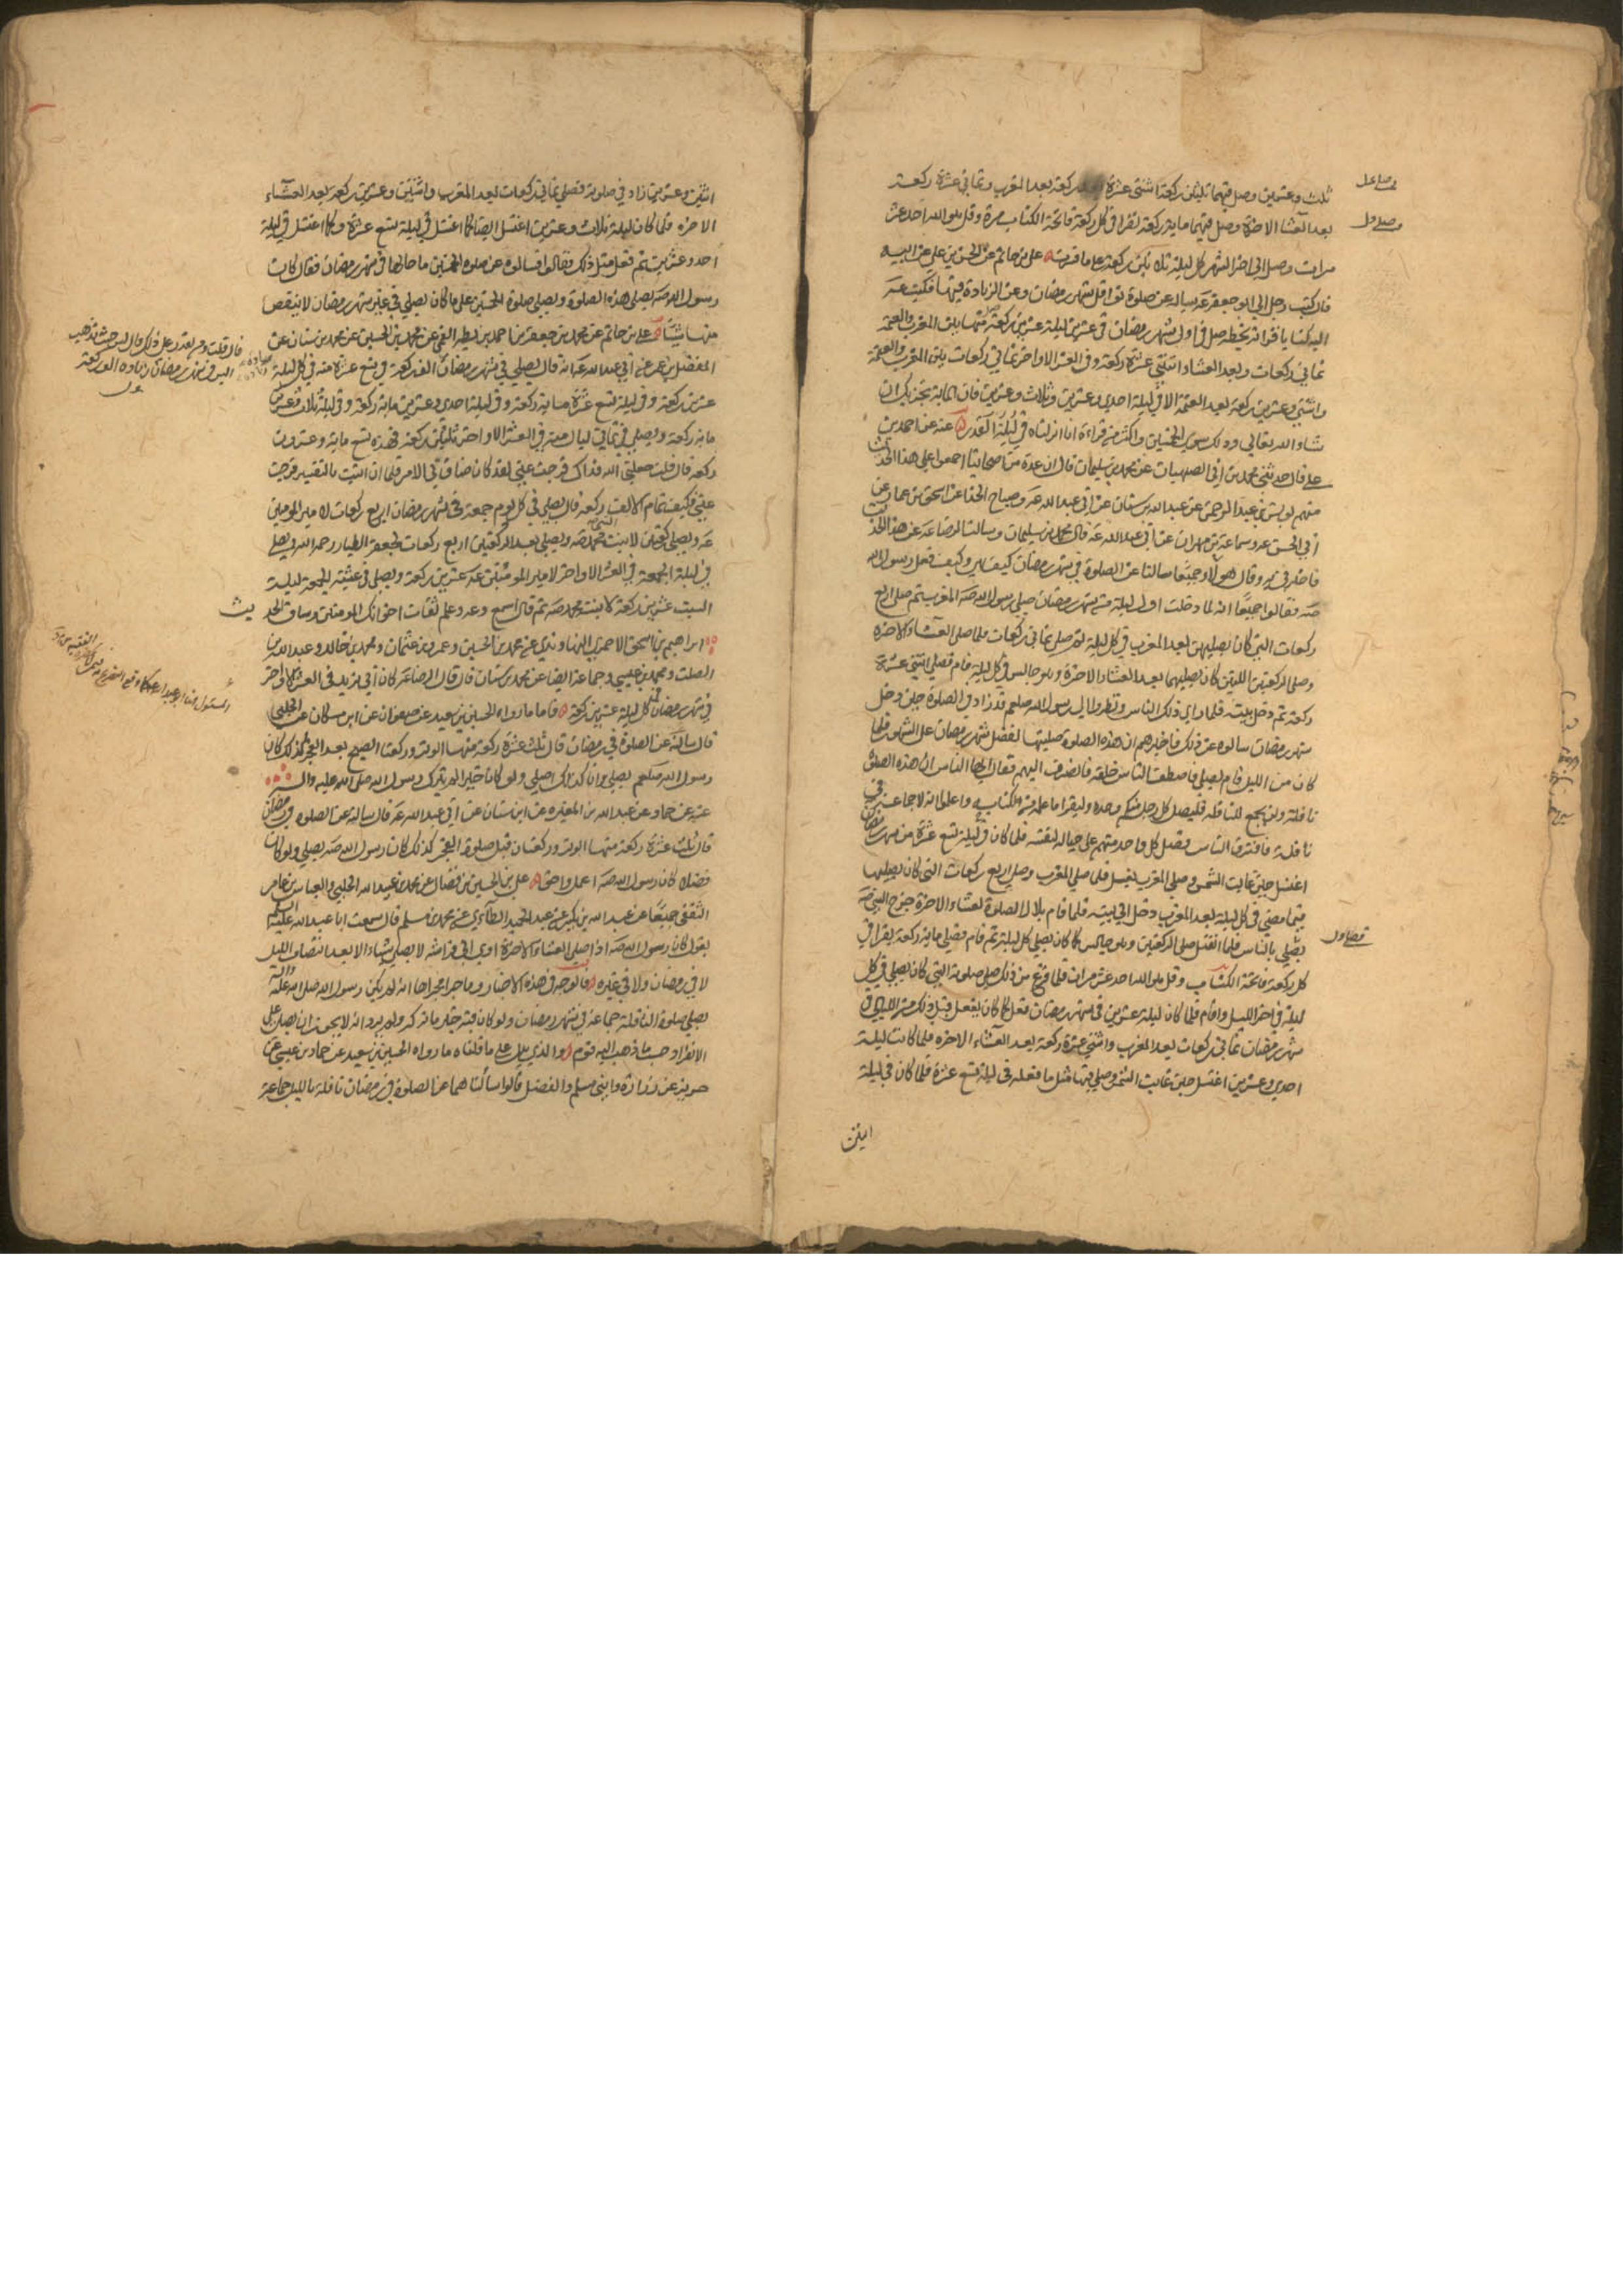 ثلث وعشرين وصل فيهما ثلثين ركعة اثنتى عشرة ركعة بعد المغرب وثمانى عشرة ركعة
بعد العشا الاخرة وصل فيهما ماية ركعة تقرا فى كل ركعة فاتحة الكتاب مرة وقل هو الله احد عشر
مرات وصل الى اخر الشهر كل ليلة ثلاثين ركعة على ما فسرت على بن حاتم عن الحسن بن على عن ابيه
قال كتب رجل الى ابو جعفر عه يساله عن صلوة نوافل شهر رمضان وعن الزيادة فيها فكتب عه
اليه كتابا قراته بخطه صل فى اول شهر رمضان فى عشرين ليلة عشرين ركعة منها ما بين المغرب والعتمة
ثمانى ركعات وبعد العشاء اثنتى عشرة ركعة وفى العشر الاواخر ثمانى ركعات بين المغرب والعتمة
واثنتى وعشرين ركعة بعد العتمة الا فى ليلة احدى وعشرين وثلاث وعشرين فان الماية تجزيك ان
شاء الله تعالى وذلك سوى الخمسين واكثر من قراءة انا انزلناه فى ليلة القدر عنه عن احمد بن
على قال حدثنى محمد بن ابى الصهبان عن محمد بن سليمان قال ان عدة من اصحابنا اجمعوا على هذا الحديث
منهم يونس بن عبد الرحمن عن عبد الله بن سنان عن ابى عبد الله عه وصباح الحذا عن اسحق بن عمار عن
ابى الحسن عه وسماعة بن مهران عن ابى عبد الله عه قال محمد بن سليمان وسالت الرضا عه عن هذا الحديث
فاخبرنى به وقال هولاء جميعا سالنا عن الصلوة فى شهر رمضان كيف هى وكيف فعل رسول الله
صه فقالوا جميعا انه لما دخلت اول ليلة من شهر رمضان صلى رسول الله صه المغرب ثم صلى اربع
ركعات التى كان يصليهن بعد المغرب فى كل ليلة ثم صلى ثمانى ركعات فلما صلى العشاء الاخره
وصلى الركعتين اللتين كان يصليهما بعد العشاء الاخرة وهو جالس فى كل ليلة قام فصلى اثنتى عشرة
ركعة ثم دخل بيته فلما راى ذلك الناس ونظروا الى رسول الله صلعم قد زاد فى الصلوة حين دخل
شهر رمضان سالوه عن ذلك فاخبرهم ان هذه الصلوة صليتها لفضل شهر رمضان على الشهور فلما
كان من الليل قام يصلى فاصطف الناس خلفه فانصرف اليهم فقال ايها الناس ان هذه الصلوة
نافلة ولن يجمع للنافلة فليصل كل رجل منكم وحده وليقرا ما علمه من الكتاب واعلموا انه لا جماعة فى
نافلة فافترق الناس فصلى كل واحد منهم على حياله لنفسه فلما كان فى ليلة تسع عشرة من شهر رمضان
اغتسل حين غابت الشمس وصلى المغرب بغسل فلما صلى المغرب وصلى اربع ركعات التى كان يصليها
فيما مضى فى كل ليلة بعد المغرب دخل الى بيته فلما قام بلال لصلوة لعشاء الاخرة خرج النبى صه
فصلى بالناس فلما انفتل صلى الركعتين وهو جالس كما كان يصلى كل ليلة ثم قام فصلى ماية ركعة يقرا فى
كل ركعة فاتحة الكتاب وقل هو الله احد عشر مرات فلما فرغ من ذلك صلى صلوته التى كان يصلى فى كل
ليلة فى اخر الليل واقام فلما كان ليلة عشرين فى شهر رمضان فعل كما كان يفعل قبل ذلك من الليالى فى
شهر رمضان ثمانى ركعات بعد المغرب واثنتى عشرة ركعة بعد العشاء الاخره فلما كانت ليلة
احدى وعشرين اغتسل حين غابت الشمس وصلى فيها مثل ما فعله فى ليلة تسع عشرة فلما كان فى ليلة
اثنين
اثنين وعشرين زاد فى صلوته فصلى ثمانى ركعات بعد المغرب واثنتين وعشرين ركعة بعد العشاء
الاخره فلما كان ليلة ثلاث وعشرين اغتسل ايضا كما اغتسل فى ليلة تسع عشرة وكما اغتسل فى ليلة
احد وعشرين ثم فعل مثل ذلك فقالوا فسالوه عن صلوة الخمسين ما حالها فى شهر رمضان فقال كان
رسول الله صه يصلى هذه الصلوة ويصلى صلوة الخمسين على ما كان يصلى فى غير شهر رمضان لا ينقص
منها شيئا على بن حاتم عن محمد بن جعفر بن احمد بن بطه القمى عن محمد بن الحسين عن محمد بن سنان عن
المفضل بن عمر عن ابى عبد الله عه انه قال يصلى فى شهر رمضان الف ركعة فى تسع عشرة منه فى كل ليلة
عشرين ركعة وفى ليلة تسع عشرة ماية ركعة وفى ليلة احدى وعشرين ماية ركعة وفى ليلة ثلاث وعشرين
ماية ركعة ويصلى فى ثمانى ليال منه فى العشر الاواخر ثلثين ركعة فهذه تسع ماية وعشرون
ركعة قال قلت جعلنى الله فداك فرجت عنى لقد كان ضاق بى الامر فلما ان اتيت بالتفسير فرجت
عنى فكيف تمام الالف ركعة قال يصلى فى كل يوم جمعة فى شهر رمضان اربع ركعات لامير المومنين
عه ويصلى ركعتين لابنت محمد صه ويصلى بعد الركعتين اربع ركعات لجعفر الطيار رحمه الله ويصلى
فى ليلة الجمعة فى العشر الاواخر لامير المومنين عه عشرين ركعة ويصلى فى عشية الجمعة ليلة
السبت عشرين ركعة لابنت محمد صه ثم قال اسمع وعه وعلم ثقات اخوانك المومنين وساق الحديث
ابراهيم بن اسحق الاحمرى النهاوندى عن محمد بن الحسين وعمرو بن عثمان ومحمد بن خالد وعبد الله بن
الصلت ومحمد بن عيسى وجماعة ايضا عن محمد بن سنان قال قال الرضا عه كان ابى يزيد فى العشر الاواخر
فى شهر رمضان كل ليلة عشرين ركعة فاما ما رواه الحسين بن سعيد عن صفوان عن ابن مسكان عن الحلبى
قال سالته عن الصلوة فى رمضان قال ثلث عشرة ركعة منها الوتر وركعتا الصبح بعد الفجر كذلك كان
رسول الله صلعم يصلى وانا كذلك اصلى ولو كان خيرا لم يتركه رسول الله صلى الله عليه واله
عنه عن حماد عن عبد الله بن المغيره عن ابن سنان عن ابى عبد الله عه قال سالته عن الصلوه فى رمضان
قال ثلث عشرة ركعة منها الوتر وركعتان قبل صلوة الفجر كذلك كان رسول الله صه يصلى ولو كان
فضلا كان رسول الله صه اعمل واحق على بن الحسين بن فضال عن محمد بن عبيد الله الحلبى والعباس بن عامر
الثقفى جميعا عن عبد الله بن بكير عن عبد الحميد الطائى عن محمد بن مسلم قال سمعت ابا عبد الله عليه السلم
يقول كان رسول الله صه اذا صلى العشاء الاخرة اوى الى فراشه لا يصلى شيئا الا بعد انتصاف الليل
لا فى رمضان ولا فى غيره فالوجه فى هذه الاخبار وما جرا مجراها انه لم يكن رسول الله صلى الله عليه واله
يصلى صلوة النافلة جماعة فى شهر رمضان ولو كان فيه خير ما تركه ولم يرد انه لا يجوز ان يصلى على
الانفراد حسب ما ذهب اليه قوم والذى يدل على ما قلناه ما رواه الحسين بن سعيد عن حماد بن عيسى عن
حريز عن زراره وابنى مسلم والفضيل قالوا سالناهما عن الصلوة فى رمضان نافلة بالليل جماعة
قال قلت ومن يقدر على ذلك قال ليس حيث تذهب
اليس فى شهر رمضان زيادة الف ركعة